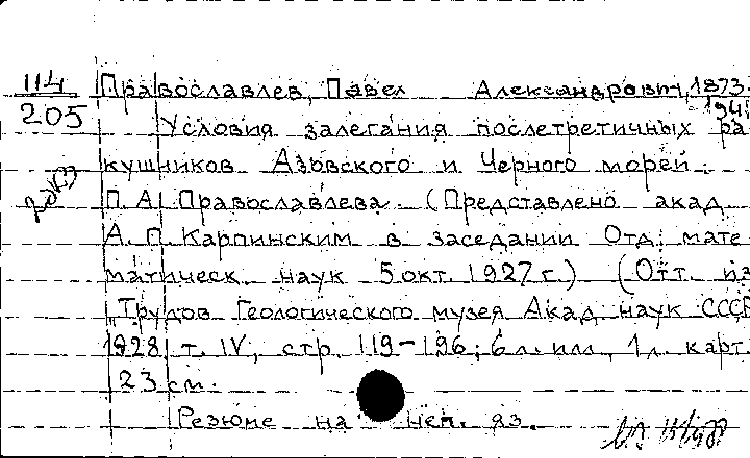 114
205
Православлев, Павел Александрович, 1873-
1941
Условия залегания послетретичных ра
кушников Азовского и Черного морей.
П. А. Православлева. (Представлено акад.
А. П. Карпинским в заседании Отд. мате
матическ. наук 5 окт. 1927 г.) (Отт. из
„Трудов Геологического музея Акад. наук СССР
1928, т. IV, стр. 119-196; 6 л. илл., 1 л. карт.
23 см.
Резюме на нем. яз.